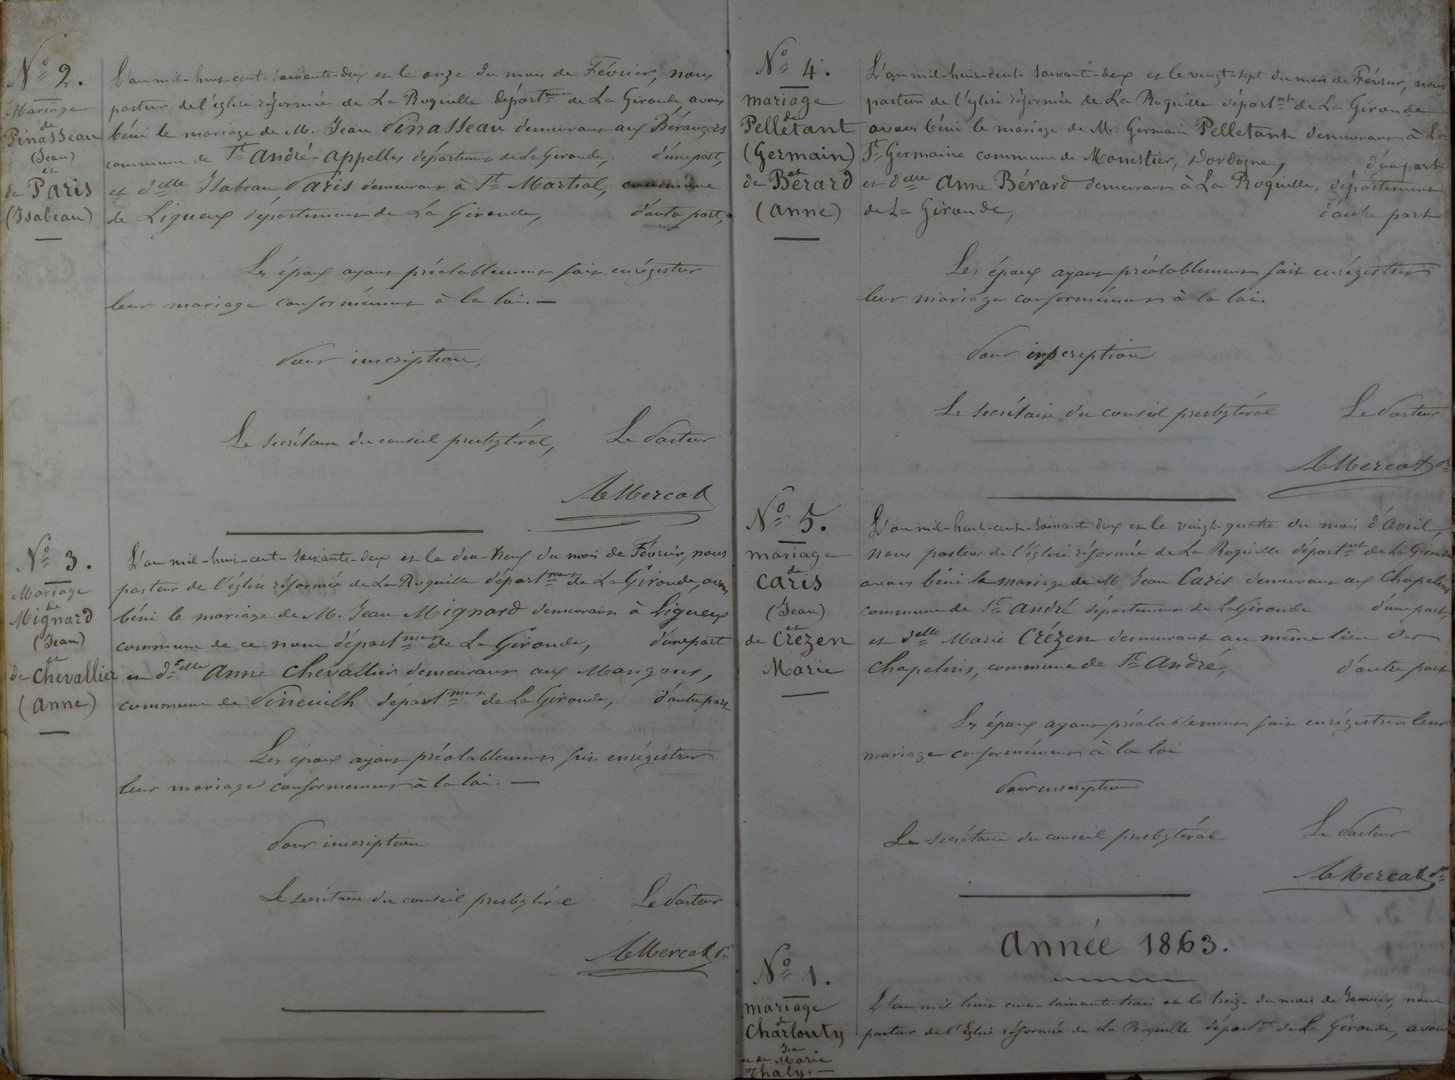 N° 2.
Mariage
de
Pinasseau
(Jean)
et
de Paris
(Isabeau)
L'an mil-huit-cent-soixante-deux et le onze du mois de Février, nous
pasteur de l'église réformée de La Roquille départment de La Gironde, avons
béni le mariage de M. Jean Pinasseau demeurant aux Bérangers
commune de St André-Appelles département de La Gironde, d'une part,
et delle Isabeau Paris demeurant à St Martial, commune
de Ligueux département de La Gironde, d'autre part,
Les époux ayant préalablement fait enrégistrer
leur mariage conformément à la loi. —
Pour inscription,
Le secrétaire du conseil presbytéral, Le Pasteur
AMercat
N° 3.
Mariage
de
Mignard
(Jean)
et
de Chevallier
(Anne)
L'an mil-huit-cent-soixante-deux et le dix-neuf du mois de Février, nous
pasteur de l'église réformée de La Roquille départment de La Gironde, avons
béni le mariage de M. Jean Mignard demeurant à Ligueux
commune de ce nom départment de La Gironde, d'une part
et delle Anne Chevallier demeurant aux Mangons,
commune de Pineuilh départment de La Gironde, d'autre part
Les époux ayant préalablement fait enrégistrer
leur mariage conformément à la loi. —
Pour inscription
Le secrétaire du conseil presbytéral Le Pasteur
AMercat Pr
N° 4.
mariage
de
Pelletant
(Germain)
et
de Bérard
(Anne)
L'an mil-huit-cent-soixante-deux et le vingt-sept du mois de Février, nous
pasteur de l'église réformée de La Roquille départmt de La Gironde
avons béni le mariage de M. Germain Pelletant demeurant à
Ste Germaine commune de Monestier, Dordogne, d'une part
et delle Anne Bérard demeurant à La Roquille, département
de La Gironde, d'autre part
Les époux ayant préalablement fait enrégistrer
leur mariage conformément à la loi.
Pour inscription
Le secrétaire du conseil presbytéral Le Pasteur
AMercat Pr
N° 5.
mariage
de
Caris
(Jean)
et
de Crézen
Marie
L'an mil-huit-cent-soixante-deux et le vingt-quatre du mois d'Avril
nous pasteur de l'église réformée de La Roquille départmt de La Gironde
avons béni le mariage de M. Jean Caris demeurant aux Chapelins
commune de St André département de La Gironde d'une part,
et delle Marie Crézen demeurant au même lieu des
Chapelins, commune de St André, d'autre part
Les époux ayant préalablement fait enrégistrer leur
mariage conformément à la loi
Pour inscription
Le secrétaire du conseil presbytéral Le Pasteur
AMercat Pr
Année 1863.
N° 1.
mariage
de
Charlouty
Jean
et de Marie
Thaly. —
L'an mil huit cent soixante trois et le treize du mois de Janvier, nous
pasteur de l'Eglise réformée de La Roquille départt de La Gironde, avons